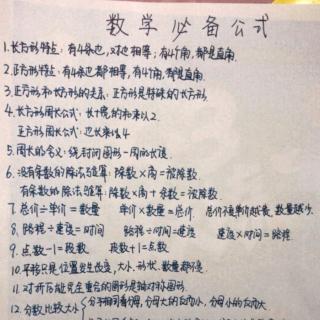 数学必备公式
1.长方形特点:有4条边,对边相等;有4个角,都是直角.
2.正方形特点:有4条边都相等,有4个角,都是直角.
3.正方形和长方形的关系:正方形是特殊的长方形.
4.长方形周长公式:长+宽的和乘以2.
正方形周长公式:边长乘4
5.周长的含义:绕封闭图形一周的长度.
6.没有余数的除法验算:除数×商=被除数.
有余数的除法验算:除数×商+余数=被除数.
7.总价÷单价=数量 单价×数量=总价 总价不变单价越贵,数量越少
8.路程÷速度=时间 路程÷时间=速度 速度×时间=路程
9.点数-1=段数 段数+1=点数
10.平移只是位置发生改变,大小、形状、数量都不变.
11.对折后能完全重合的图形是轴对称图形
12.分数比较大小 分子相同看分母,分母大的反而小,分母小的反而大